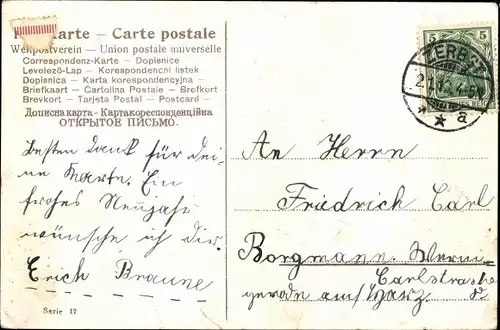 karte — Carte postale
Weltpostverein — Union postale universelle
Correspondenz-Karte — Dopisnice
Levelező-Lap — Korespondenční listek
Dopisnica — Karta korespondencyjna
Briefkaart — Cartolina Postale — Brefkort
Brevkort — Tarjeta Postal — Postcard
Дописна карта - Картакореспонденційна
ОТКРЫТОЕ ПИСЬМО.
5 5
ZERBST
a
REICH
Besten Dank für dei-
ne Karte. Ein
frohes Neujahr
wünsche ich dir.
Erich Braune
An Herrn
Friedrich Carl
Borgmann, Werni-
Carlstrasse
gerode am/Harz
Serie 17